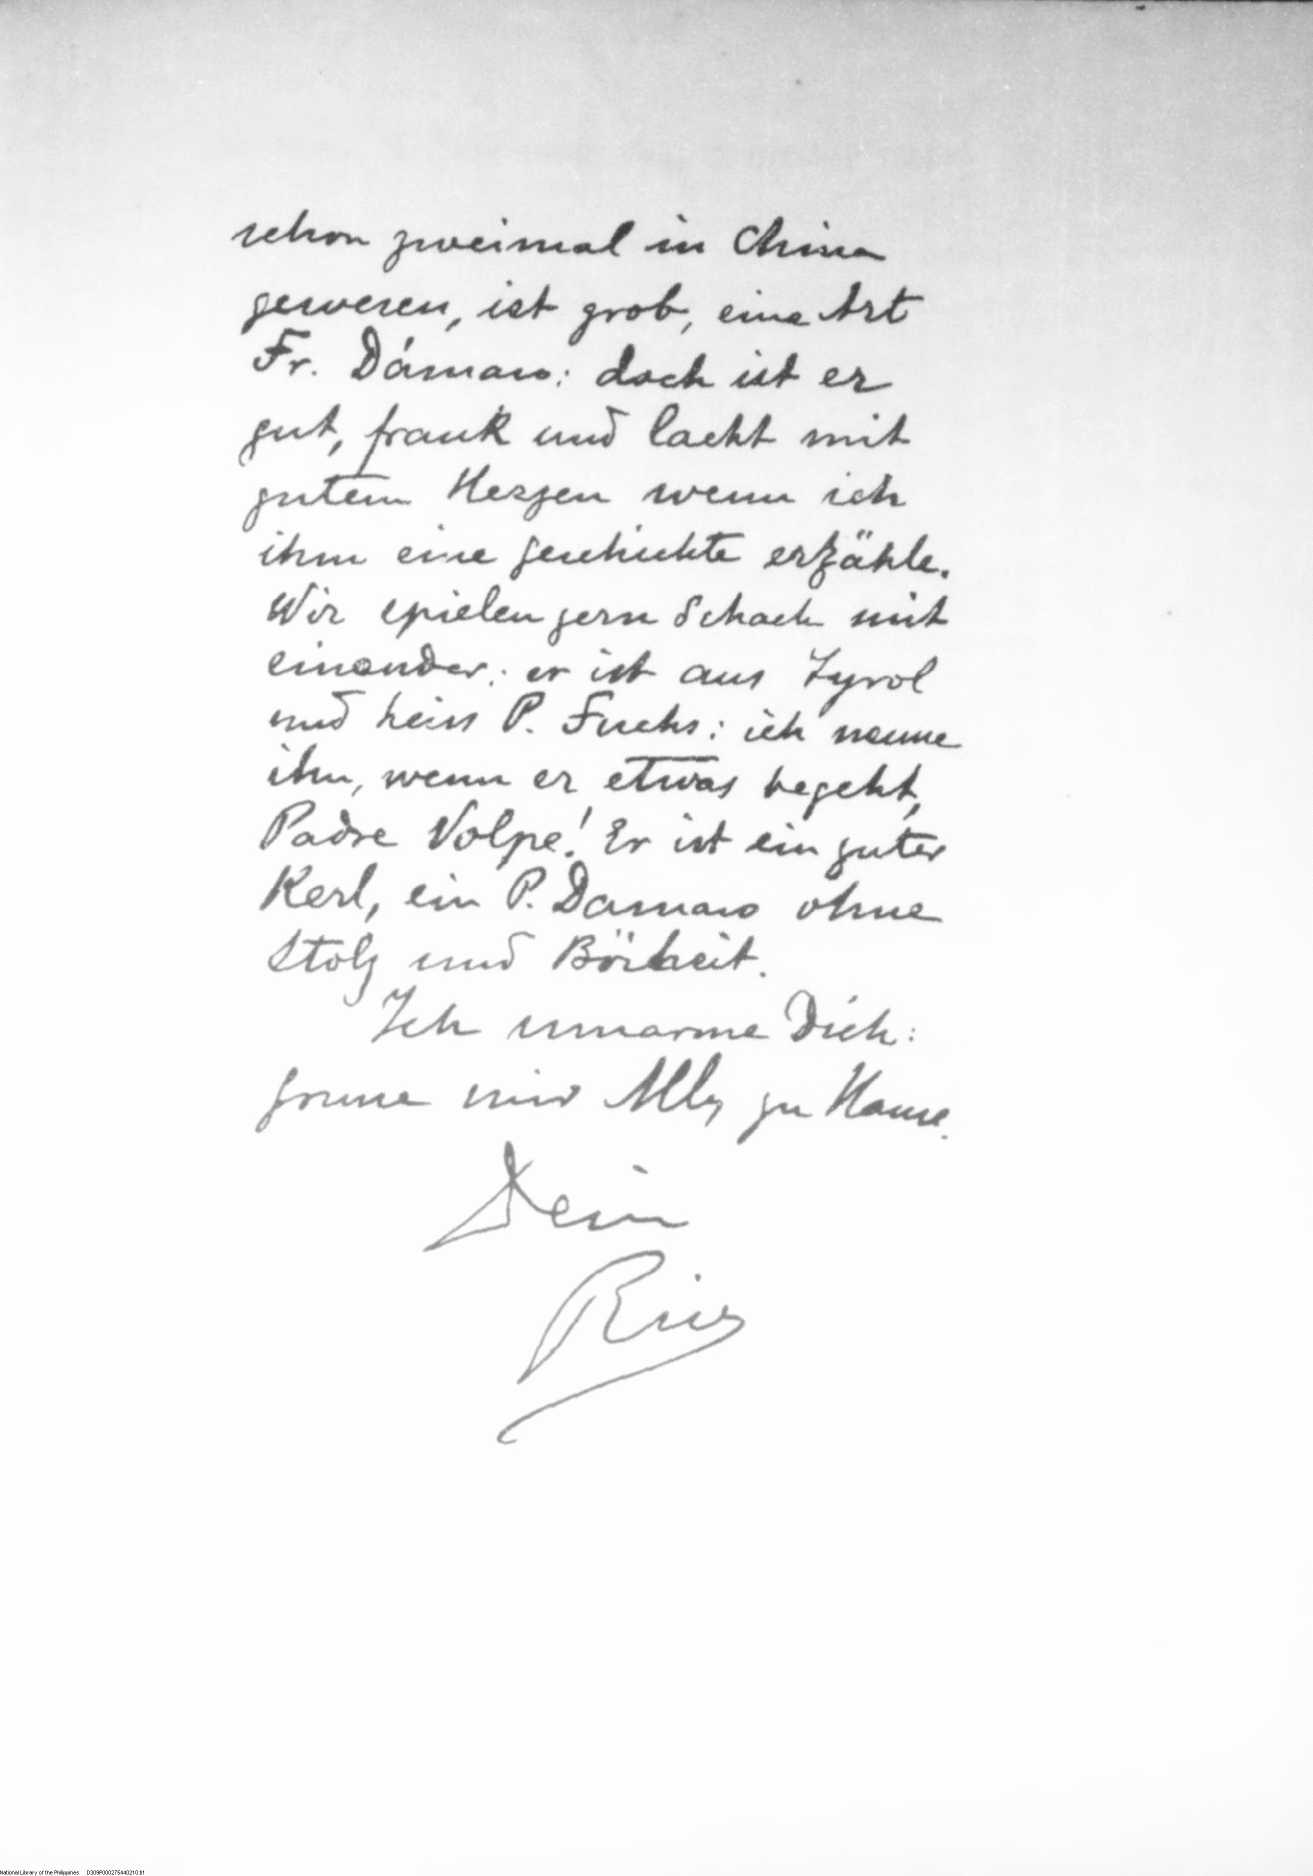 schon zweimal in China
gewesen, ist grob, eine Art
Fr. Dámaso: doch ist er
gut, frank und lacht mit
gutem Herzen wenn ich
ihm eine geschichte erzähle.
Wir spielen gern Schach mit
einander: er ist aus Tyrol
und heiss P. Fuchs: ich nenne
ihn, wenn er etwas begeht,
Padre Volpe! Er ist ein guter
Kerl, ein P. Damaso ohne
Stolz und Bösheit.
Ich umarme Dich:
grusse mir Alle zu Hause.
Dein
National Library of the Philippines D309P000275440210.tif